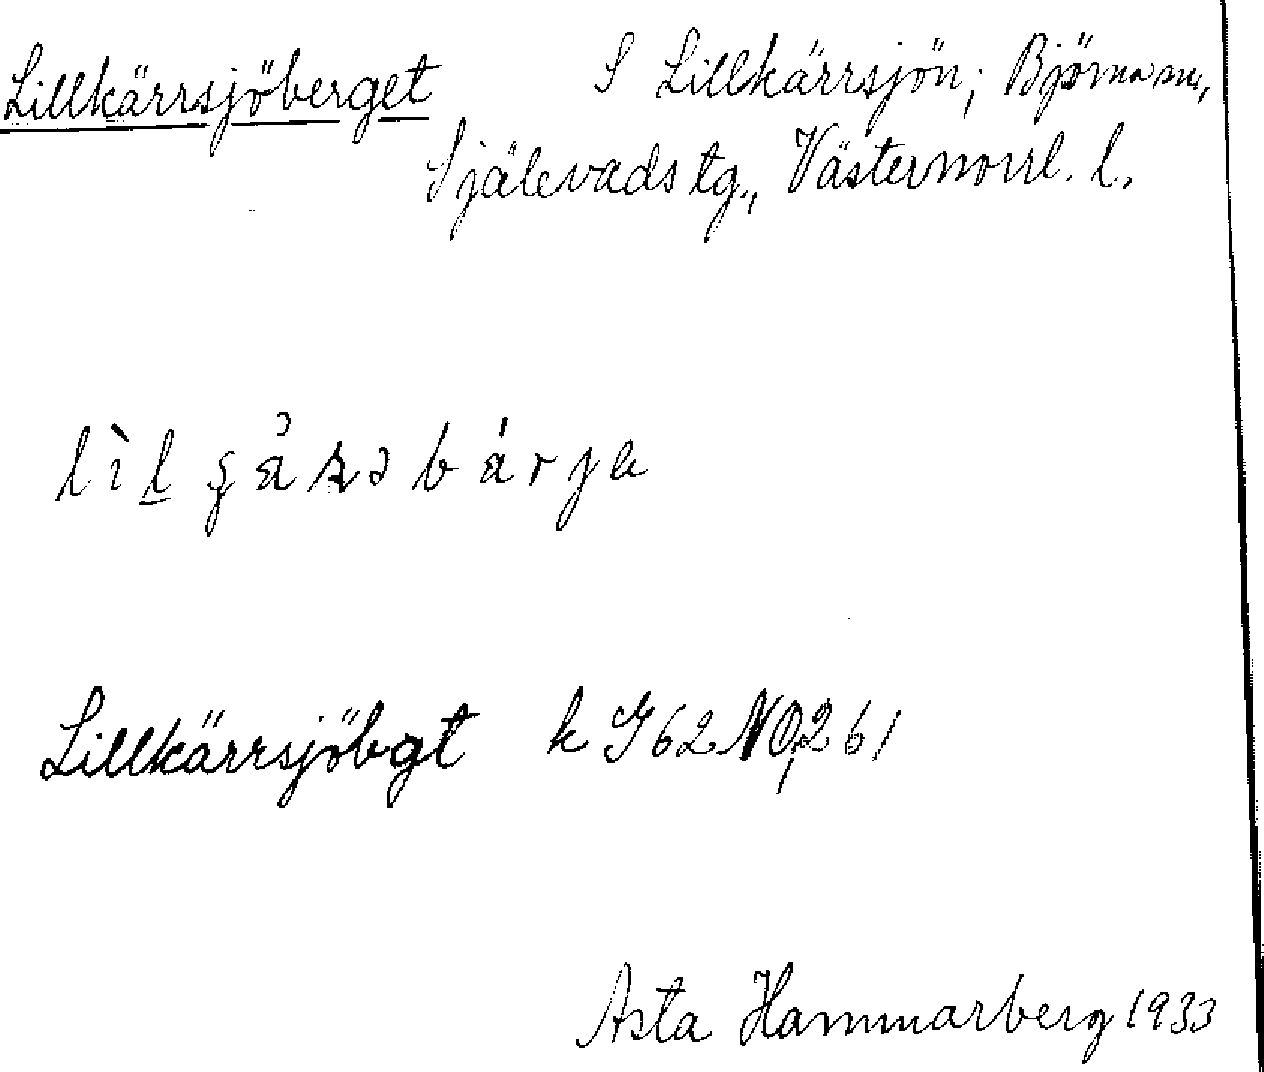 Lillkärrsjöberget S Lillkärrsjön; Björna sn,
Själevads tg., Västernorrl. l.
Lillkärrsjöbgt k G62 NO,261
Asta Hammarberg 1933